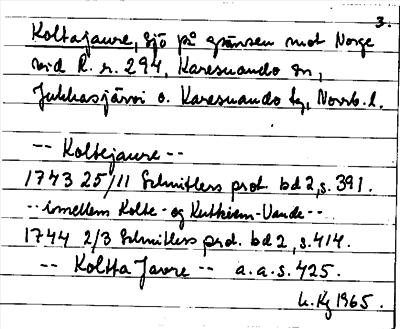 3.
Koltajaure, sjö på gränsen mot Norge
vid R. r. 294, Karesuando sn,
Jukkasjärvi o. Karesuando tg, Norrb. l.
-- Koltejaure --
1743 25/11 Schnitlers prot. bd 2, s. 391.
-- imellem Kolte- og
1744 2/3 Schnitlers prot. bd 2, s. 414.
-- Koltta Javre -- a. a. s. 425.
1965.